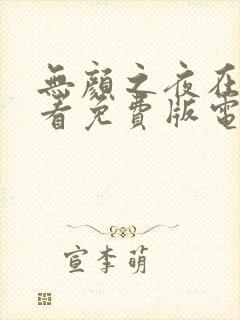 無顏之夜在
看免費版電
宣李萌